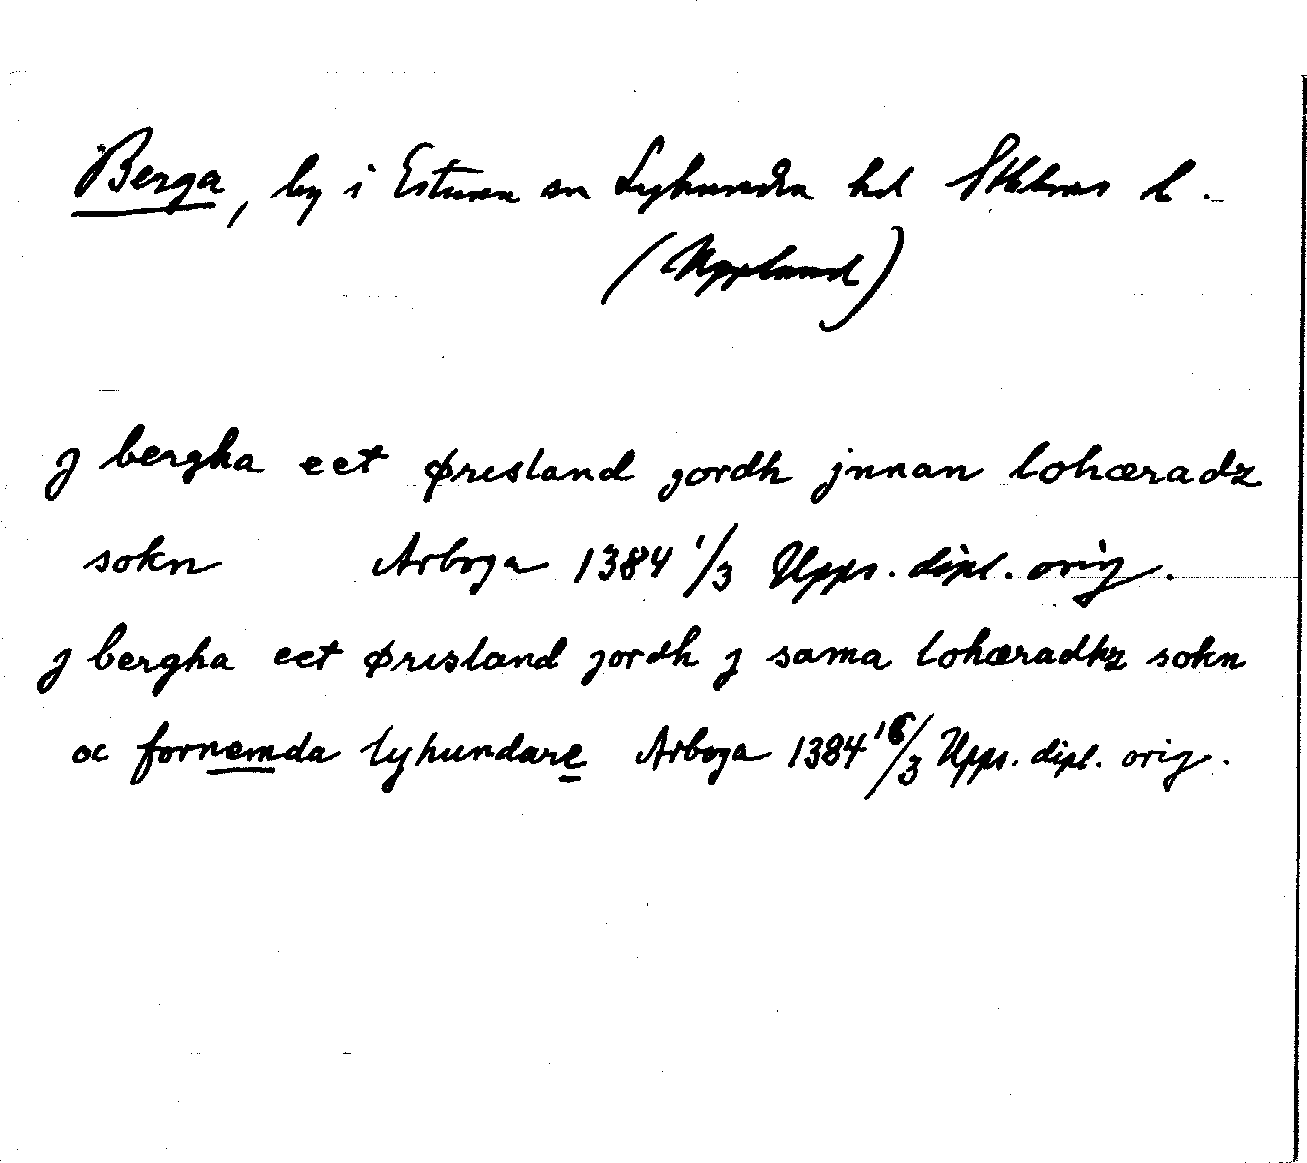 Berga, by i Estuna sn Lyhundra hd Sthlms l.
(Uppland)
j bergha eet ørisland jordh jnnan lohæradz
sokn Arboga 1384 1/3 Upps. dipl. orig.
j bergha eet ørisland jordh j sama lohæradhz sokn
oc fornemda lyhundare Arboga 1384 16/3 Upps. dipl. orig.